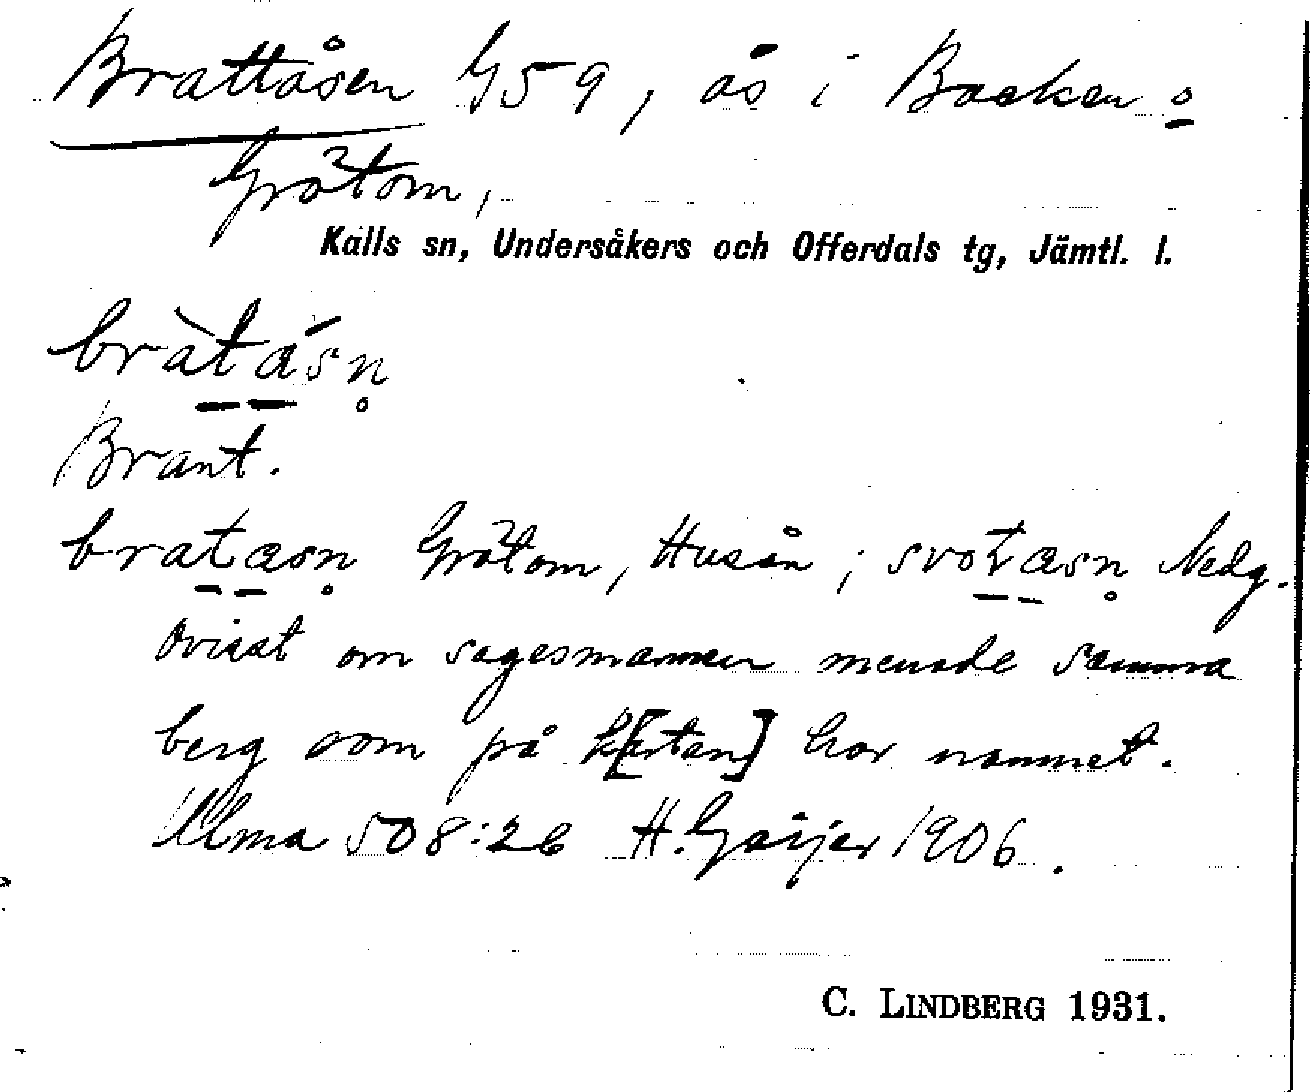 Brattåsen G59, ås i Backen o
Gråtom,
Kalls sn, Undersåkers och Offerdals tg, Jämtl. l.
bràtásn̥
Brant.
bratasn̥ Gråtom, Huså̊n; svotasn̥ Nedg.
Ovisst om sagesmannen menade samma
berg som på k[artan] har namnet.
Ulma 508:26 H. Geijer 1906.
C. LINDBERG 1931.